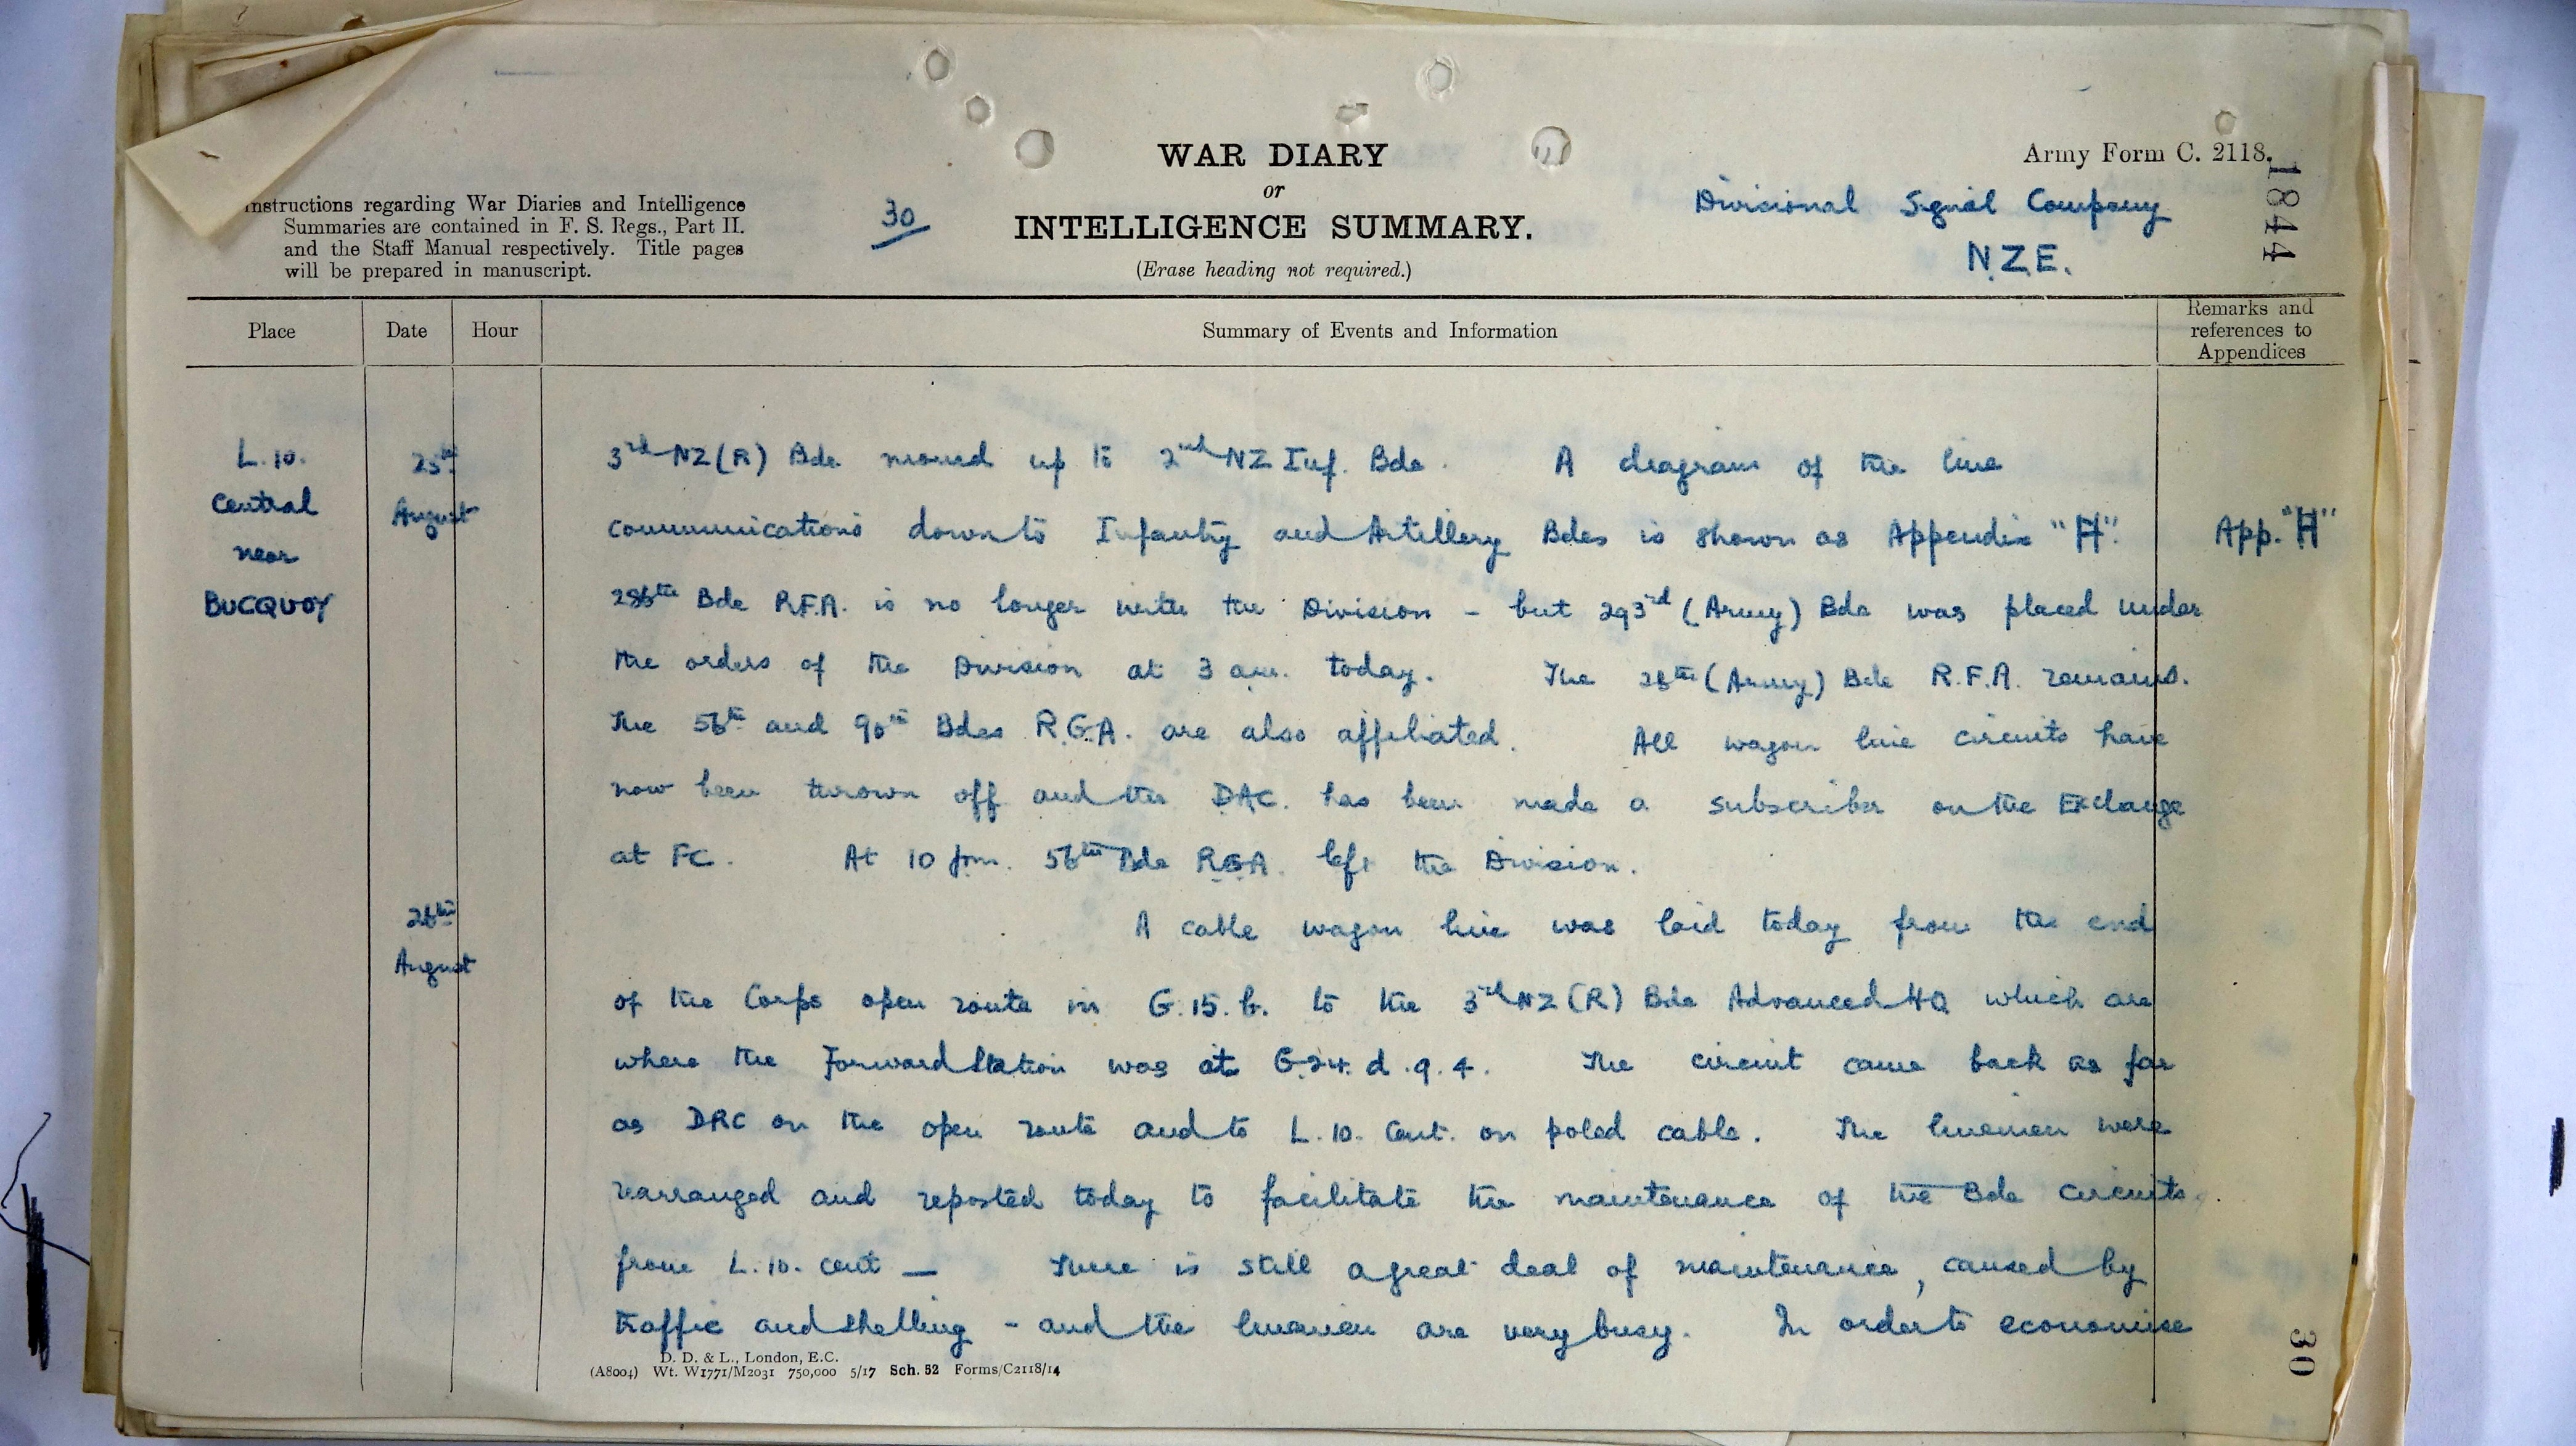 WAR DIARY
or
INTELLIGENCE SUMMARY.
(Erase heading not required.)
Army Form C. 2118.
Instructions regarding War Diaries and Intelligence
Summaries are contained in F. S. Regs., Part II.
and the Staff Manual respectively. Title pages
will be prepared in manuscript.
30
Divisional Signal Company
N.Z.E.
1844
Place
Date
Hour
Summary of Events and Information
Remarks and
references to
Appendices
L.10.
Central
near
BUCQUOY
25th
August
3rd NZ(R) Bde moved up to 2nd NZ Inf. Bde. A diagram of the line
communications down to Infantry and Artillery Bdes is shown as Appendix "H".
App. "H"
286th Bde R.F.A. is no longer with the Division - but 293rd (Army) Bde was placed under
the orders of the Division at 3 am. today. The 28th (Army) Bde R.F.A. remains.
The 56th and 90th Bdes R.G.A. are also affiliated. All wagon line circuits have
now been thrown off and the DAC. has been made a subscriber on the Exchange
at FC. At 10 pm. 56th Bde RGA. left the Division.
26th
August
A cable wagon line was laid today from the end
of the Corps open route in G.15.b. to the 3rd NZ(R) Bde Advanced HQ which are
where the Forward Station was at G.24.d.9.4. The circuit came back as far
as DRC on the open route and to L.10. Cent. on poled cable. The linemen were
rearranged and reposted today to facilitate the maintenance of the Bde circuits.
from L.10. cent — There is still a great deal of maintenance, caused by
traffic and shelling - and the linemen are very busy. In order to economise
D. D. & L., London, E.C.
(A8004) Wt. W1771/M2031 750,000 5/17 Sch. 52 Forms/C2118/14
30